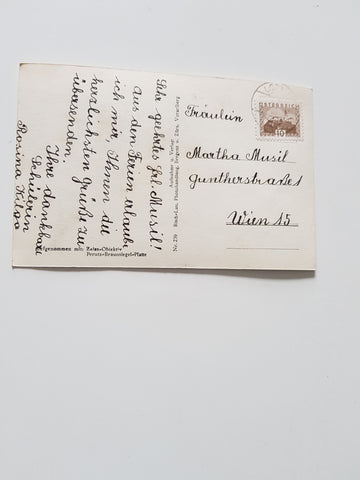 Sehr geehrtes Frl. Musil!
Aus den Ferien erlaube
ich mir, Ihnen die
herzlichsten Grüße zu
übersenden.
Ihre dankbare
Schülerin
Rosina
Aufgenommen mit Zeiss-Objektiv
Perutz-Braunsiegel-Platte
Nr. 239
Aufnahme u. Verlag
Risch-Lau, Photohandlung, Bregenz u. Zürs, Vorarlberg
ÖSTERREICH
Fräulein
Martha Musil
Guntherstraße 1
Wien 15